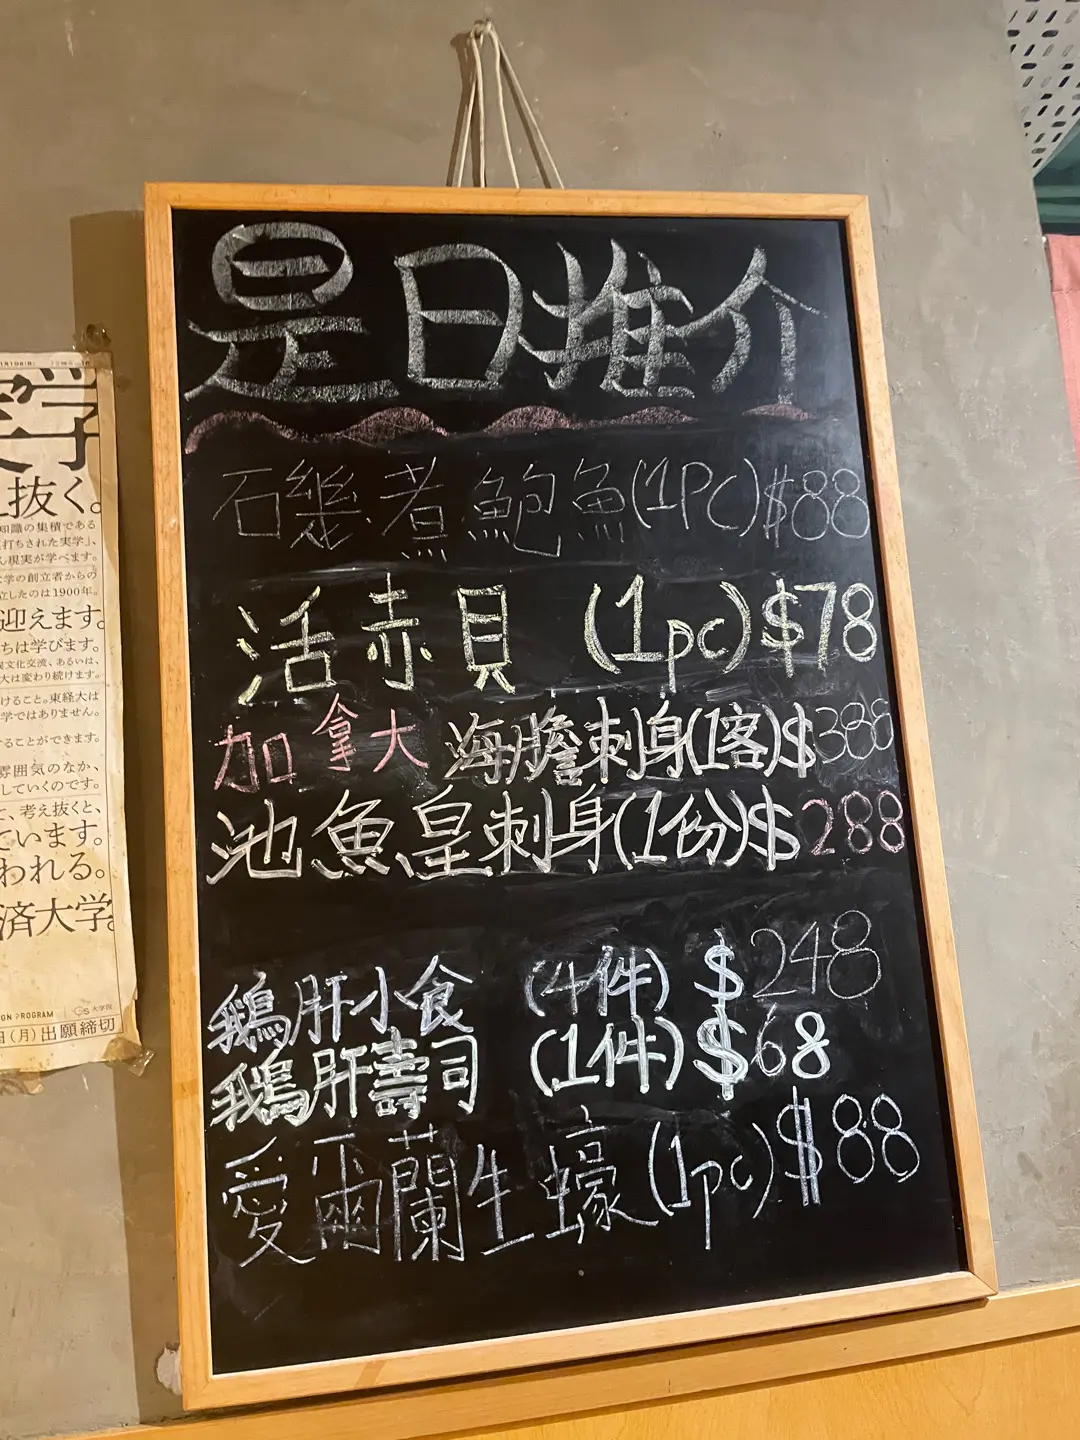 是日推介
石幾煮鮑魚(1PC)$88
活赤貝 (1pc)$78
加拿大海膽刺身(1客)$388
池魚皇刺身(1份)$288
鵝肝小食 (4件) $248
鵝肝壽司 (1件) $68
愛爾蘭生蠔(1pc)$88
実学
抜く。
知識の集積である
打ちされた実学」、
現実が学べます。
学の創立者からの
立したのは1900年。
迎えます。
ちは学びます。
文化交流、あるいは、
大は変わり続けます。
けること。東経大は
学ではありません。
することができます。
雰囲気のなか、
していくのです。
て、考え抜くと、
ています。
われる。
済大学。
ON PROGRAM
大学院
日(月)出願締切